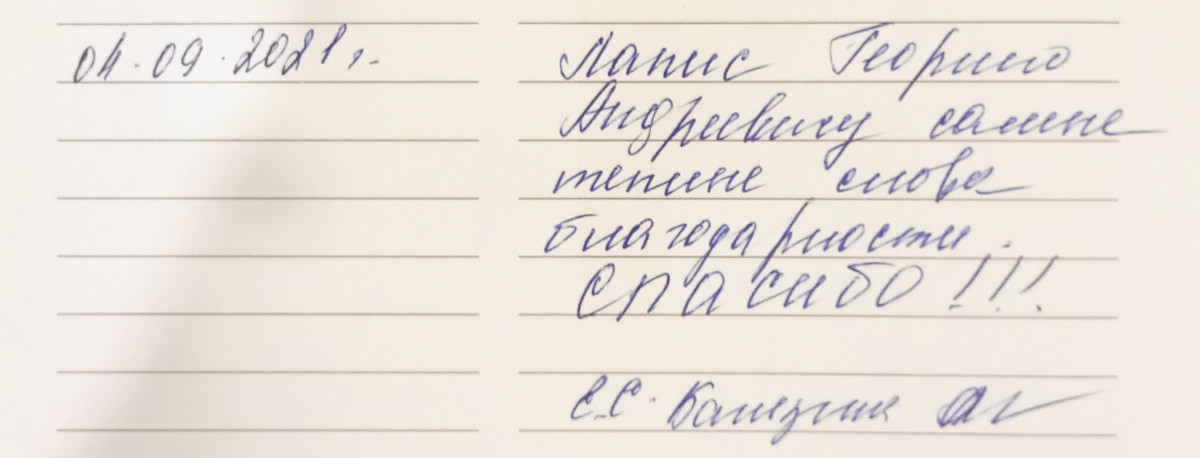 04.09.2021г.
Лапис Георгию
Андреевичу самые
теплые слова
благодарности.
СПАСИБО!!!
Е.С.